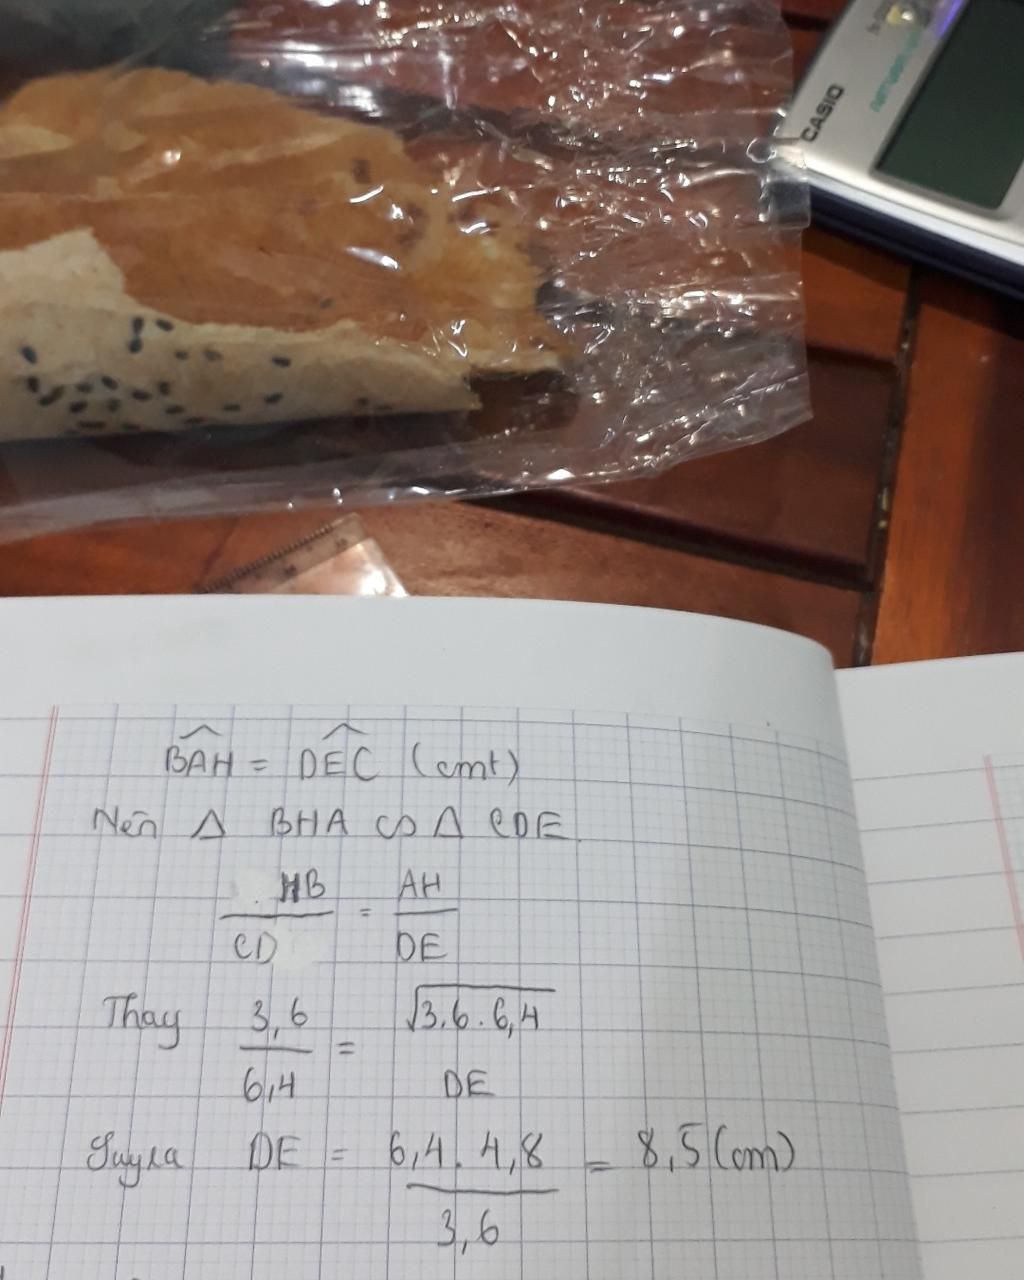 CASIO
BAH = DEC (cmt)
Nên Δ BHA ∽ Δ CDE
HB/CD = AH/DE
Thay 3,6/6,4 = √3,6.6,4/DE
Suy ra DE = 6,4.4,8/3,6 = 8,5 (cm)